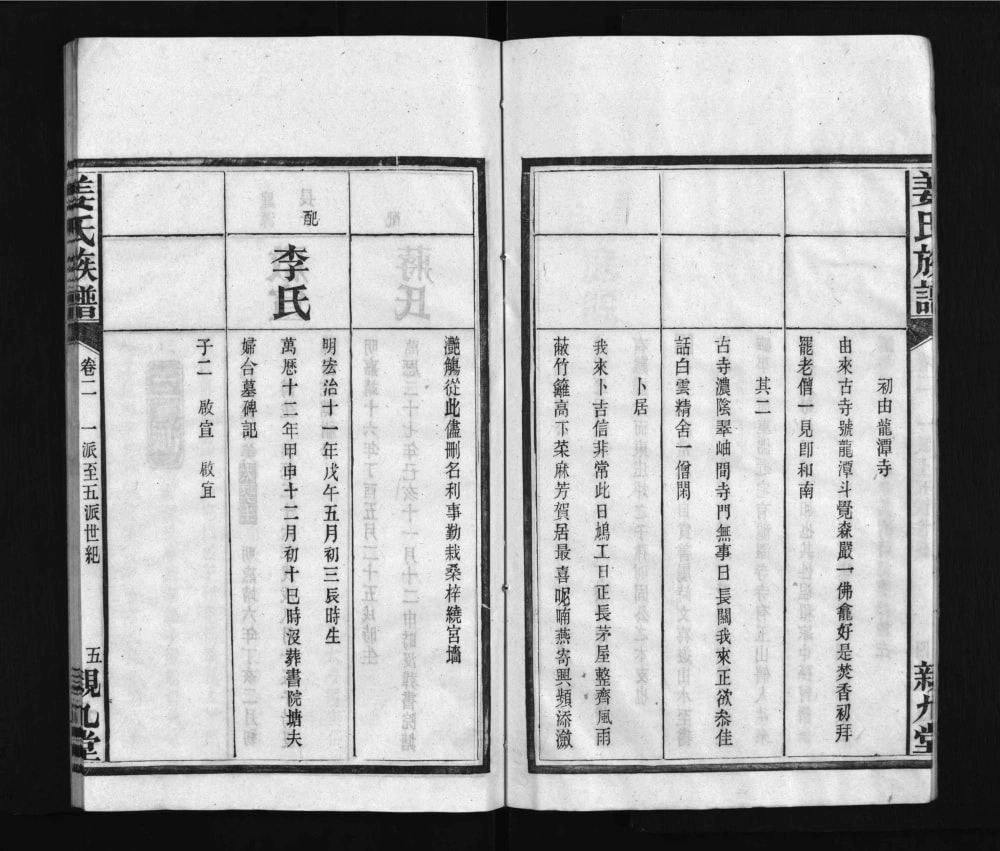 姜氏族譜
親九堂
初由龍潭寺
由來古寺號龍潭斗覺森嚴一佛龕好是焚香初拜
罷老僧一見卽和南
其二
古寺濃陰翠岫間寺門無事日長關我來正欲叅佳
話白雲精舍一僧閑
卜居
我來卜吉信非常此日鳩工日正長茅屋整齊風雨
蔽竹籬高下菜麻芳賀居最喜呢喃燕寄興頻添瀲
灧觴從此儘刪名利事勤栽桑梓繞宮墻
配
李氏
明宏治十一年戊午五月初三辰時生
萬歷十二年甲申十二月初十巳時沒葬書院塘夫
婦合墓碑記
子二 啟宣 啟宜
姜氏族譜
卷二 一派至五派世紀
五
親九堂